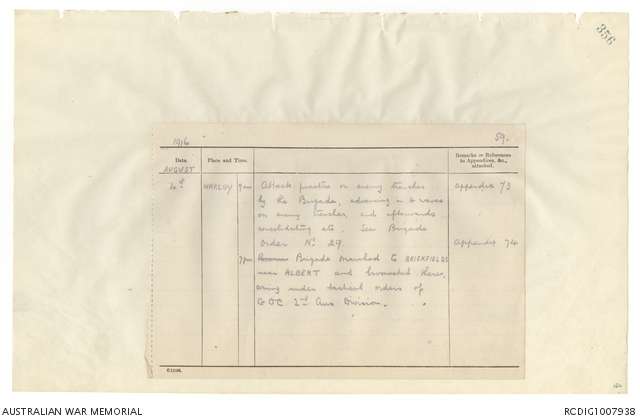 356
1916
59.
Date.
Place and Time.
Remarks or References to Appendices, &c., attached.
AUGUST
4th WARLOY 9am Attack practice on enemy trenches Appendix 73
by the Brigade, advancing in 4 waves
on enemy trenches, and afterwards
consolidating etc. See Brigade
Order No 29. Appendix 74
7pm Brigade marched to BRICKFIELDS
near ALBERT and bivouaced there,
coming under tactical orders of
G O C 2nd Aus Division.
AUSTRALIAN WAR MEMORIAL
RCDIG1007938